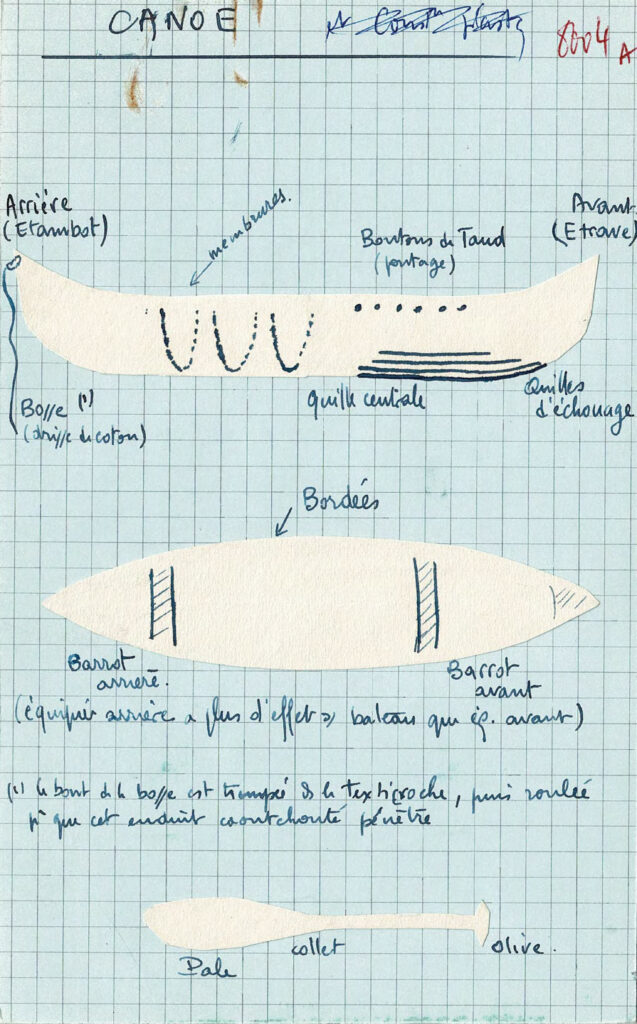 CANOE
8004 A
Arrière
(Etambot)
membrures.
Boutons de Taud
(pontage)
Avant
(Etrave)
Bosse (1)
(drisse de coton)
quille centrale
Quilles
d'échouage
Bordées
Barrot
arrière.
Barrot
avant
(équipier arrière a plus d'effet bateau que éq. avant)
(1) le bout de la bosse est trempé ds la, puis roulée
pr que cet enduit caoutchouté pénètre
Pale
collet
olive.